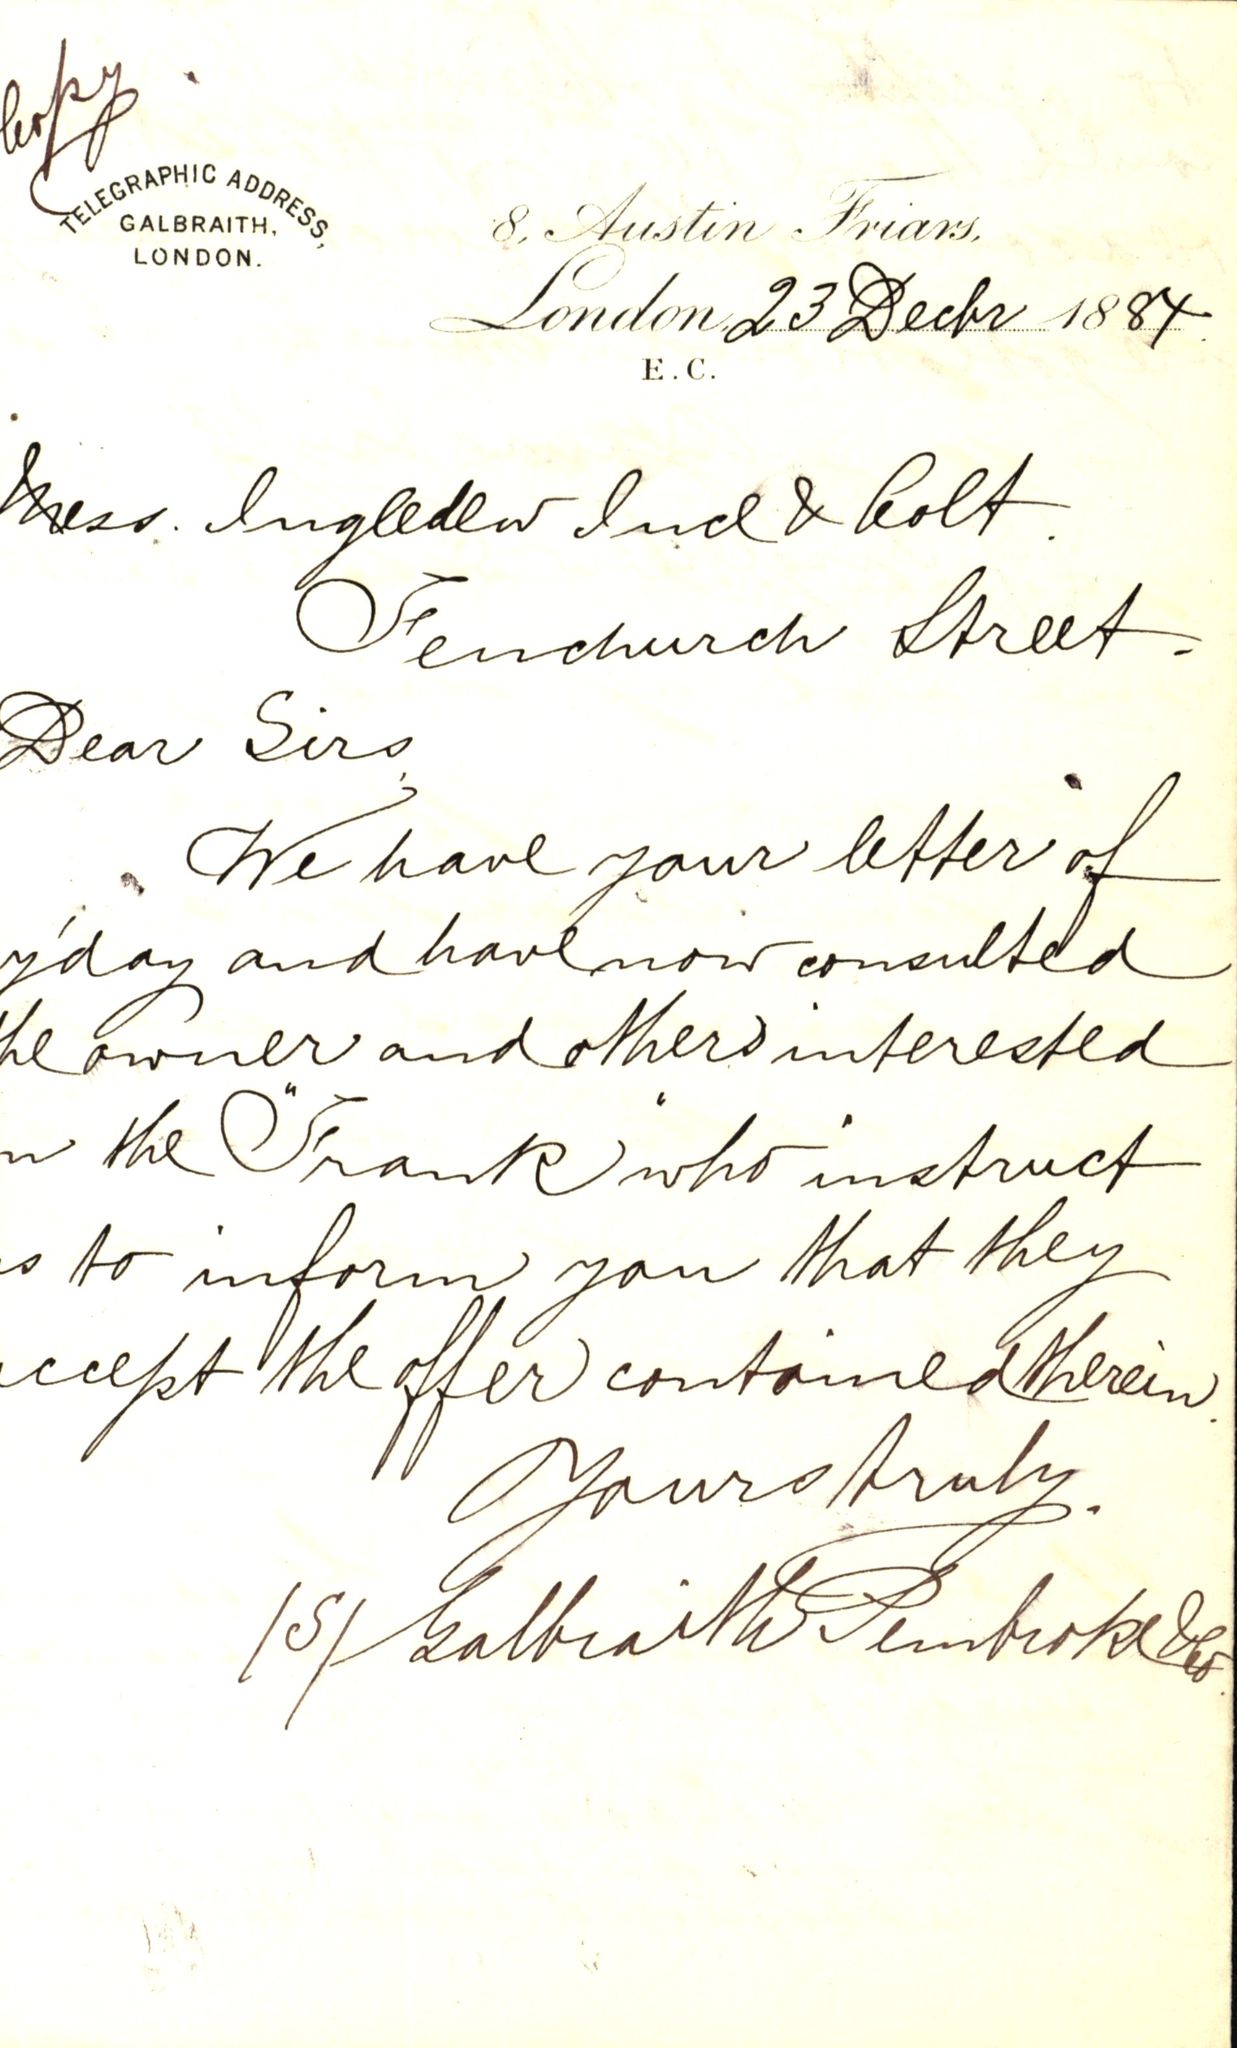 Copy
TELEGRAPHIC ADDRESS,
GALBRAITH,
LONDON.
8, Austin Friars,
London, 23 Decbr 1884.
E.C.
Mess. Ingledew Ince & Colt.
Fenchurch Street.
Dear Sirs,
We have your letter of
y'day and have now consulted
the owner and others interested
in the "Frank" who instruct
us to inform you that they
accept the offer contained therein.
Yours truly.
/S/ Galbraith Pembroke & Co.